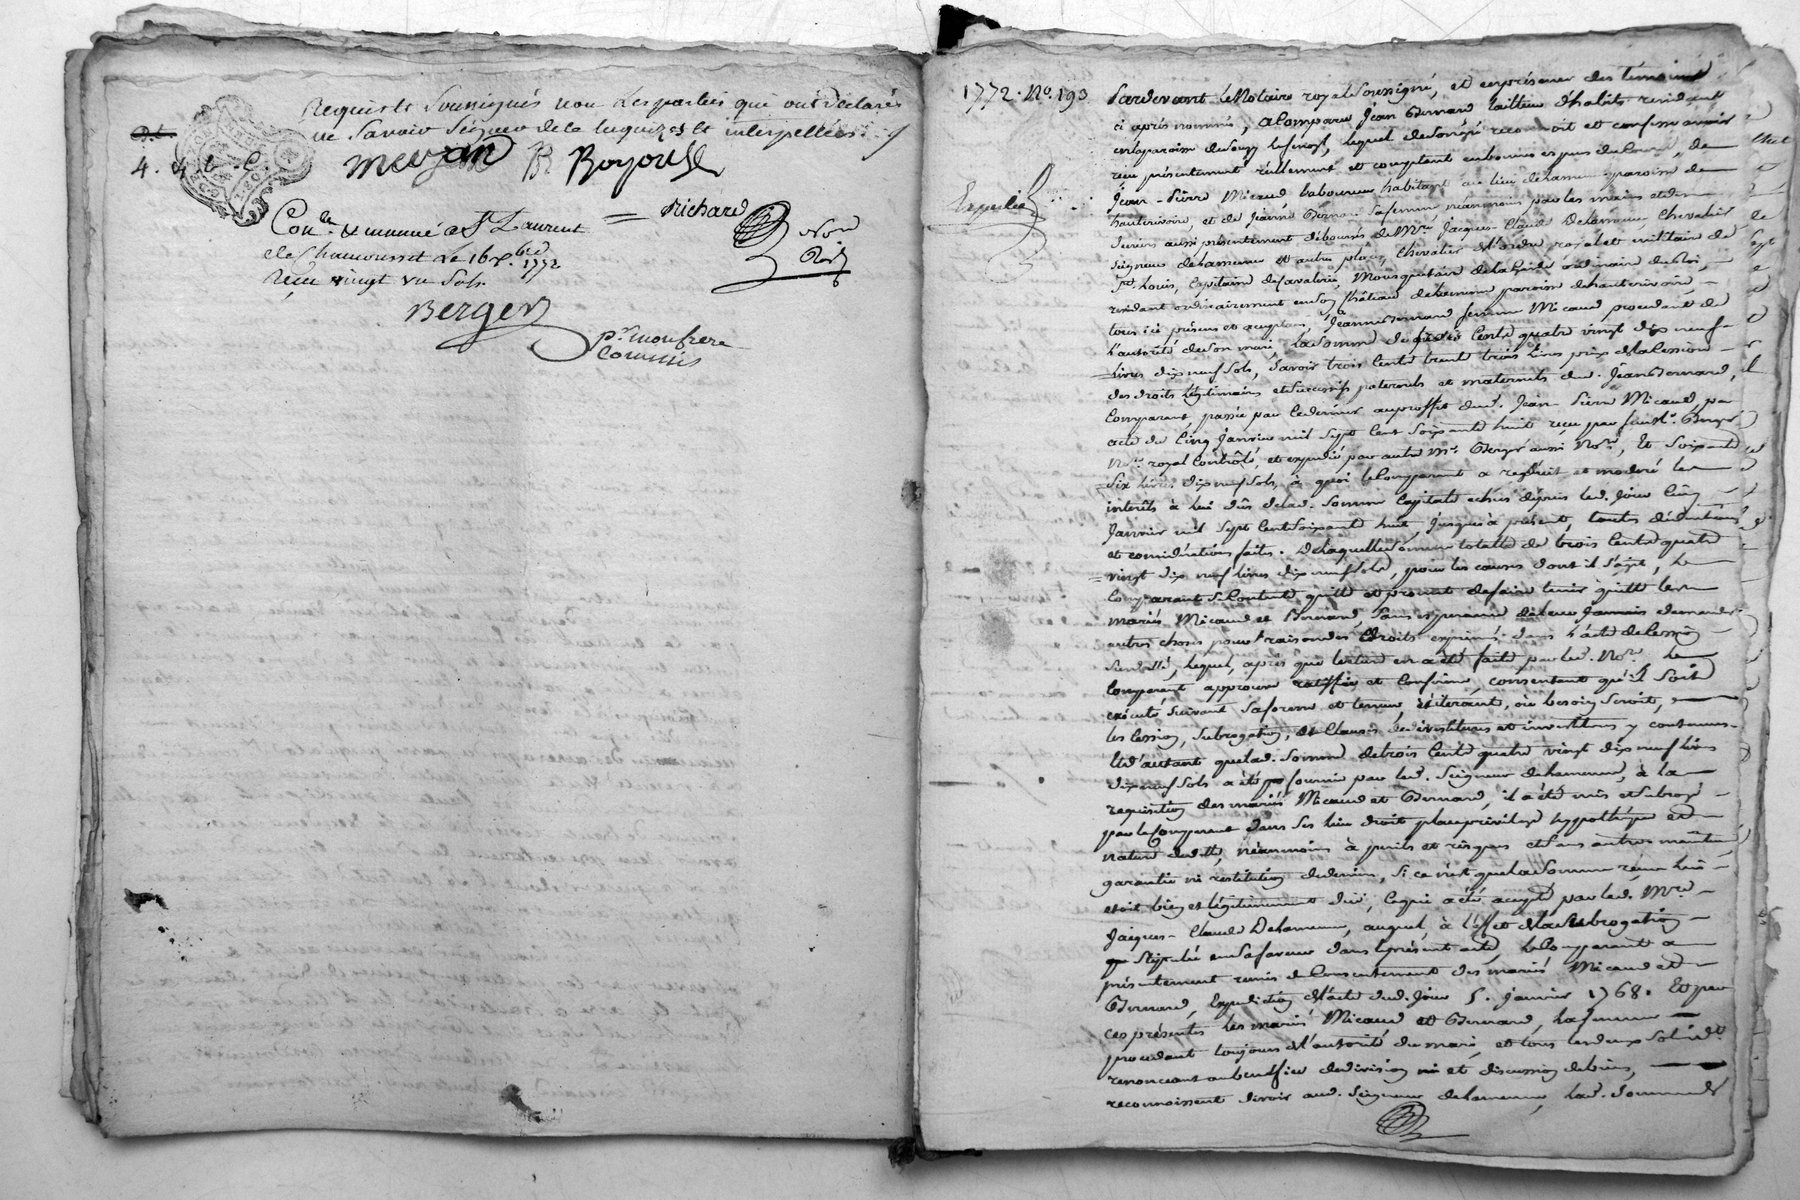 Requis et Soussignés non Lesparties qui ont déclarés
ne Savoir Signer de ce enquizes et interpellées
4.
meyzan B Boyoud
Richard
Con.lé et insinué a St Laurent
de Chamousset Le 16 x.bre 1772
Reçu vingt un Sols
Berger
pr monfrere
Commis
1772. No. 193
Pardevant LeNotaire royal Soussigné, et enprésence des témoins
ci après nommés, a Comparu Jean Bernard tailleur d'habits residant
reçu présentement réellement et comptant en bonnes especes du Cours, de
Jean-Pierre Micaud laboureur habitant au lieu de paroisse de
hauterivoire, et de Jeanne Bernard Safemme néanmoins par les mains et
deniers aussi présentement déboursés de Mre Jacques-Claude Chevalier
Expédiée
Seigneur et autres places, Chevalier de L'ordre royal et militaire de
St Louis, Capitaine de Cavalerie, Mousquetaire de la garde ordinaire du Roi,
residant ordinairement en Son Château paroisse de hauterivoire
tous ici présens et acceptans, Jeanne Bernard femme Micaud procedant de
L'autorité de Son mari, La Somme de trois Cents quatre vingt dix neuf
Livres dix neuf Sols, Savoir trois Cents trente trois Livres prix de la Cession
des droits Légitimaires et Successifs paternels et maternels dud. Jean Bernard,
Comparant, passée par Cedernier auproffit dud. Jean Pierre Micaud par
acte du Cinq Janvier mil Sept Cent Soixante huit reçu par feu Mr. Berger
No.re royal Contrôlé, et expédié par autre Mr. Berger aussi No.re, Et Soixante
Six Livres dix neuf Sols, à quoi le Comparant a reduit et modéré les
interêts à lui dûs delad. Somme Capitale echus depuis led. jour Cinq
Janvier mil Sept Cent Soixante huit, jusqu'à présent, toutes déductions
et considérations faites. De laquelle Somme totalle de trois Cents quatre
vingt dix neuf Livres dix neuf Sols, pour les causes dont il S'agit, le
Comparant Se Contente, quitte et promet de faire tenir quitte les
mariés Micaud et Bernard, Sans esperance de leur Jamais demander
autres choses pour raison des droits exprimés dans L'acte de Cession
Susdatté, lequel, après que lecture en a été faite par led. No.re le
Comparant approuve ratiffie et Confirme, consentant qu'il Soit
exécuté Suivant Saforme et teneur, réiterant, où besoin Seroit,
les Cession, Subrogation, et Clauses de devestitures et investitures y contenues.
Et d'autant que lad. Somme de trois Cents quatre vingt dix neuf Livres
dix neuf Sols a été fournie par led. Seigneur à la
requisition des mariés Micaud et Bernard, il a été mis et Subrogé
par le Comparant dans Ses lieu droit place privilege hypothèque et
nature de dette, néanmoins à perils et risques et Sans autres maintenue
garantie ni restitution de deniers, Si ce n'est que la Somme reçue lui
etoit bien et légitimement due, Ce qui a été accepté par led. Mre
Jacques-Claude auquel, à L'effet de la Subrogation
Stipulée en Sa faveur dans le présent acte, Le Comparant a
présentement remis du Consentement des mariés Micaud et
Bernard, Expedition de L'acte dud. Jour 5. Janvier 1768. Et par
ces présentes les mariés Micaud et Bernard, La femme
procedant toujours de L'autorité du mari, et tous les deux Solid.t
renonceant au benefice de division et discussion de biens,
reconnoissent devoir aud. Seigneur lad. Somme de